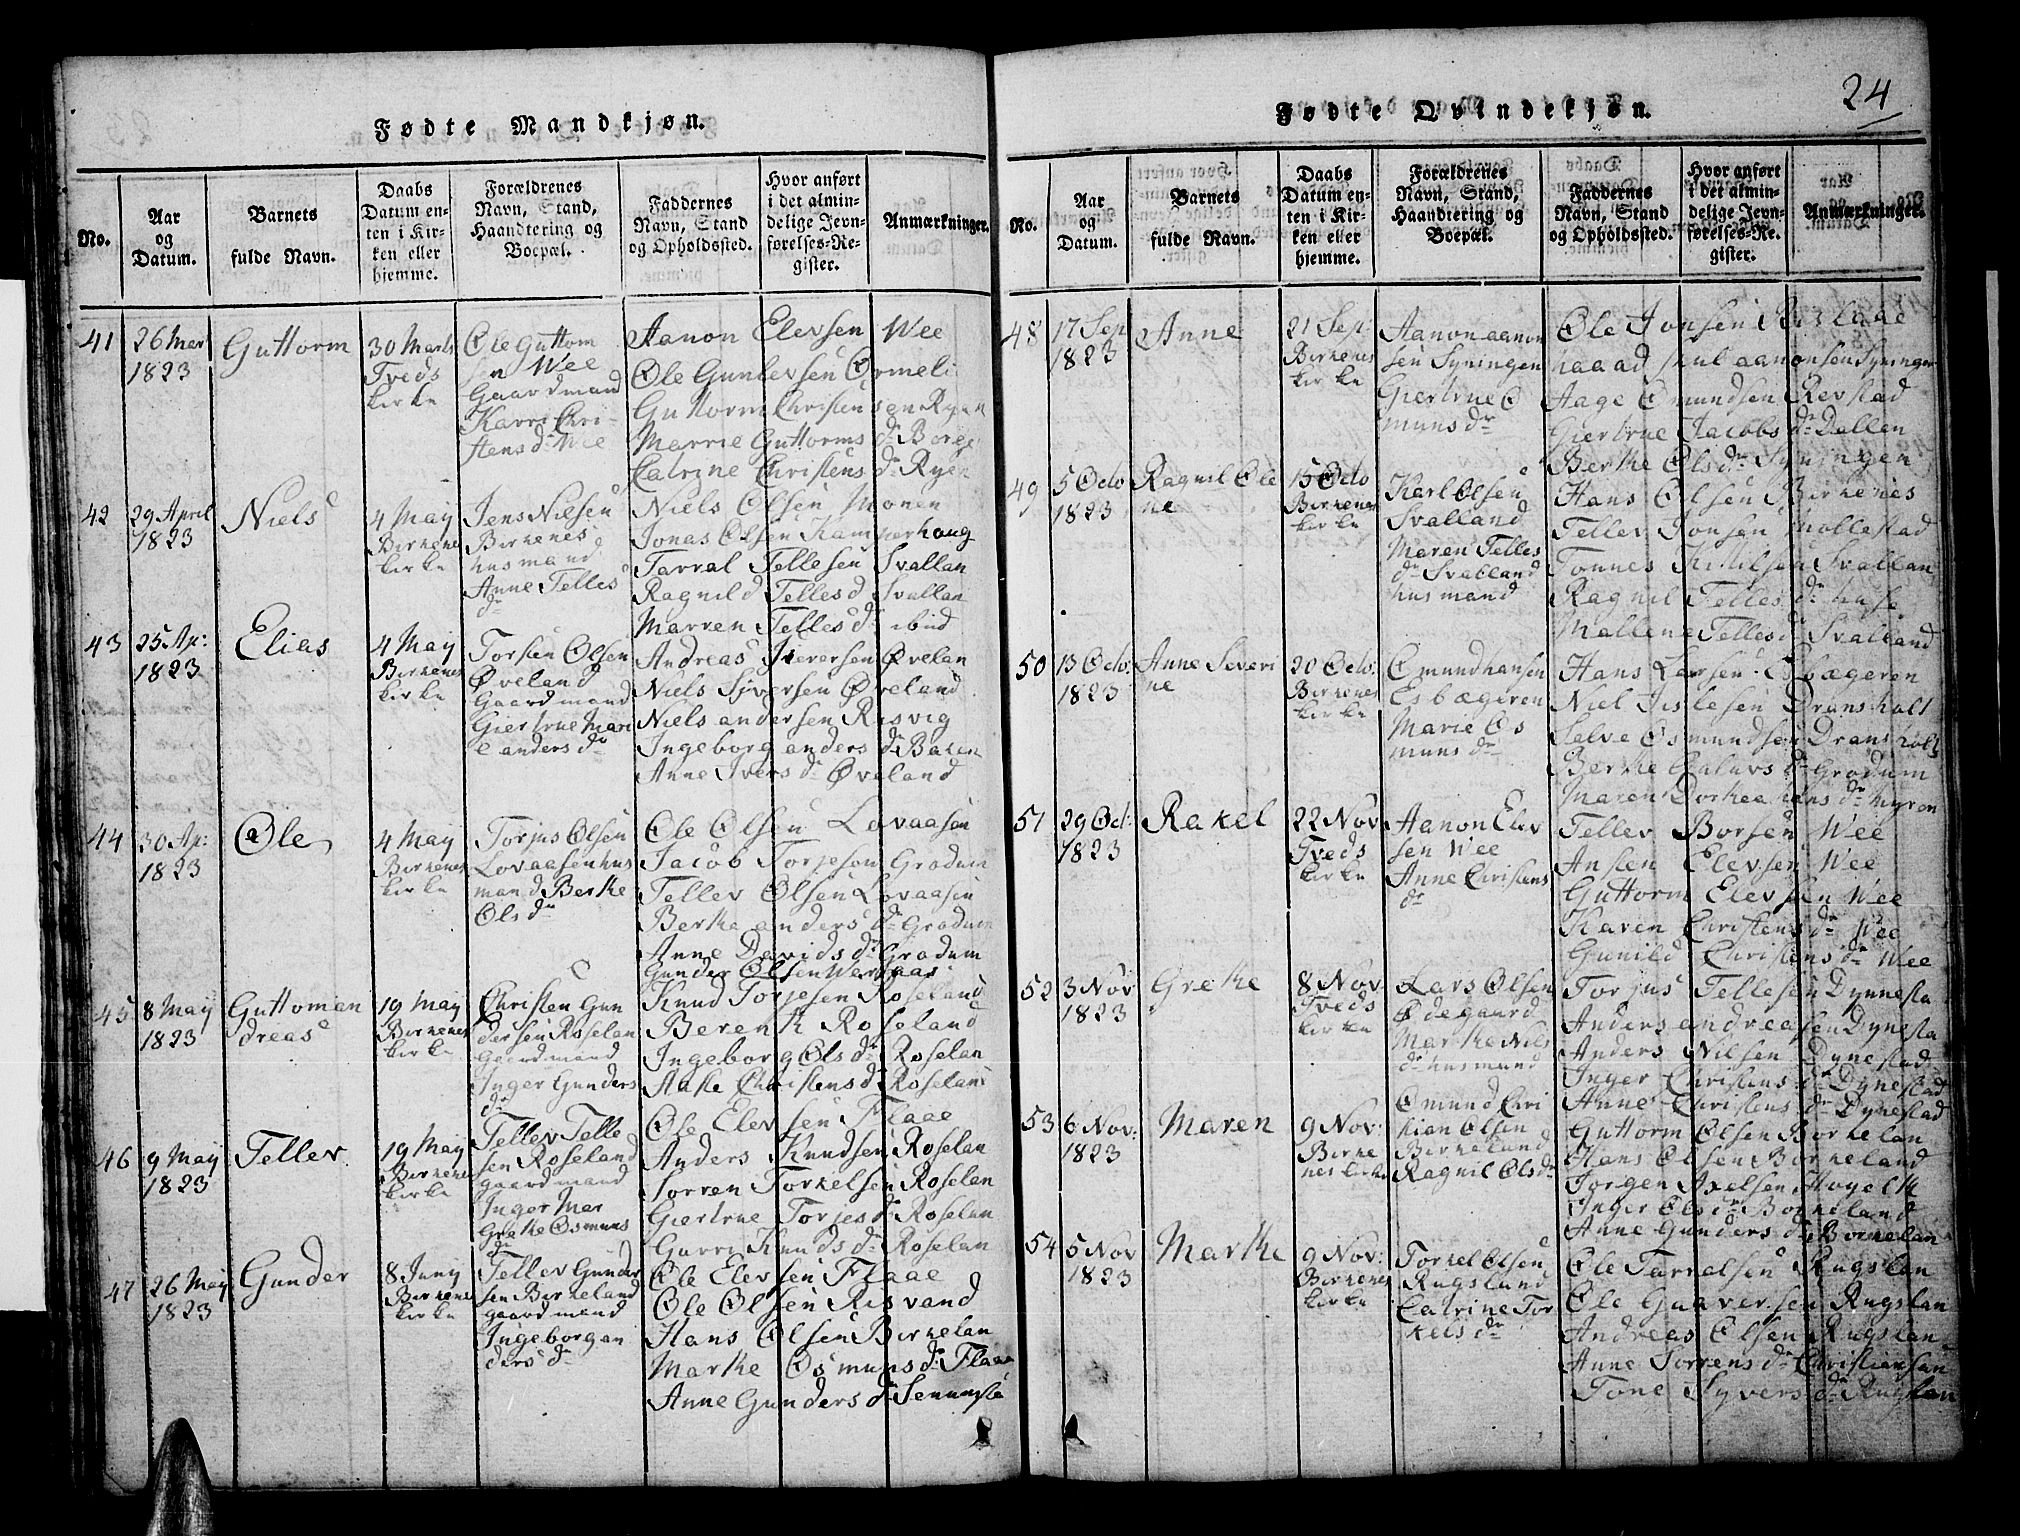 24
Fødte Mandkjøn.
No.
Aar
og
Datum.
Barnets
fulde Navn.
Daabs
Datum en-
ten i Kir-
ken eller
hjemme.
Forældrenes
Navn, Stand,
Haandtering og
Boepæl.
Faddernes
Navn, Stand
og Opholdssted.
Hvor anført
i det almin-
delige Jevn-
førelses-Re-
gister.
Anmærkninger.
41
26 Mar
1823
Guttorm
30 Marts
Tveds
kirke
Ole Guttom
sen Wee
Gaardmand
Karri Chri-
stens dr Wee
Aanon Elevsen Wee
Ole Gunlevsen
Guttorm Christensen Ryen
Marrie Guttorms dr Borge
Catrine Christens dr Ryen
42
29 April
1823
Niels
4 May
Birkenes
kirke
Jens Nielsen
Birkenes
husmand
Anne Telles
dr
Niels Olsen Monen
Jonas Olsen Kamperhaug
Tarral Tellesen Svallan
Ragnild Telles d Svallan
Marren Telles dr ibid
43
25 Ap:
1823
Elias
4 May
Birkenes
kirke
Torsten Olsen
Øveland
Gaardmand
Giertrue Mari
e anders dr
Andreas Iversen Øvelan
Niels Sjversen Øveland
Niels andersen Risvig
Ingeborg anders dr Baken
Anne Ivers dr Øveland
44
30 Ap:
1823
Ole
4 May
Birkenes
kirke
Torjus Olsen
Lovaasen hus
mand Berthe
Ols dr
Ole Olsen Lovaasen
Jacob Torjesen Grødum
Tellev Olsen Lovaasen
Berthe anders dr Grødum
Anne Davids dr Grødum
Gunder Olsen
45
8 May
1823
Guttoman
dreas
19 May
Birkenes
kirke
Christen Gun
dersen Roselan
gaardmand
Inger Gunders
dr
Knud Torjesen Roseland
Berenth Roseland
Ingeborg Ols dr Roselan
Aase Christens d Roseland
46
9 May
1823
Tellev
19 May
Birkenes
kirke
Tellev Telle
sen Roseland
gaardmand
Inger Mar
grethe Osmuns
dr
Ole Elevsen Flaae
Anders Knudsen Roselan
Sorren Torkelsen Roselan
Giertrue Torjes d Roselan
Gurri Knuds dr Roselan
47
26 May
1823
Gunder
8 Juny
Birkenes
kirke
Tellev Gunder
sen Birkeland
gaardmand
Ingeborg an
ders dr
Ole Elevsen Flaae
Ole Olsen Risvand
Hans Olsen Birkelan
Marthe Osmuns dr Flaae
Anne Gunders d
Fødte Qvindekjøn.
No.
Aar
og
Datum.
Barnets
fulde Navn.
Daabs
Datum en-
ten i Kir-
ken eller
hjemme.
Forældrenes
Navn, Stand,
Haandtering og
Boepæl.
Faddernes
Navn, Stand
og Opholdssted.
Hvor anført
i det almin-
delige Jevn-
førelses-Re-
gister.
Anmærkninger.
48
17 Sep
1823
Anne
21 Sep:
Birkenes
kirke
Aanon aanon
sen Syningen
Giertrue O
muns dr
Ole Jonsen
aanonsen Syningen
Aage Omundsen Revstad
Giertrue Jacobs dr Dallen
Berthe Ols dr Syningen
49
5 Octo
1823
Ragnil Ole
ne
15 Octo
Birkenes
kirke
Karl Olsen
Svalland
Maren Telles
dr Svalland
husmand
Hans Olsen Birkenes
Tellev Jonsen Mollestad
Tonnes Kitilsen Svallan
Ragnil Telles dr huse
Mallene Telles d Svalland
50
13 Octo
1823
Anne Severi
ne
20 Octo:
Birkenes
kirke
Omund hansen
Esbægeren
Marie Os
muns dr
Hans Larsen Esbægeren
Niel Dransholt
Salve Osmundsen Dransholt
Berthe dr Grødum
Maren Dorthea hans dr Myren
51
29 Oct:
1823
Rakel
22 Nov
Tveds
kirke
Aanon Elev
sen Wee
Anne Christens
dr
Tellev Borsen Wee
Ansten Elevsen Wee
Guttorm Elevsen Wee
Karen Christens dr Wee
Gunild Christens dr Wee
52
3 Nov
1823
Grethe
8 Nov
Tveds
kirke
Lars Olsen
Ødegaard
Marthe Nils
dr husmand
Torjus Tellesen Dynnesta
Anders andreasen Dynesta
Anders Nilsen Dynestad
Inger Christens dr Dynestad
Anne Christens dr Dynestad
53
6 Nov:
1823
Maren
9 Nov:
Birke
nes kirke
Omund Chri
stian Olsen
Birkeland
Ragnil Ols dr
Guttorm Olsen Birkelan
Hans Olsen Birkeland
Jorgen Axelsen
Inger Ols dr
Anne Gunders dr Birkelan
54
5 Nov
1823
Marthe
9 Nov:
Birkenes
kirke
Torkel Olsen
Rugsland
Catrine Tor
kels dr
Ole Tarralsen Rugslan
Ole Gunversen Rugslan
Andreas Olsen Rugslan
Anne Sorrens dr Christiansan
Tone Syvers dr Rugslan